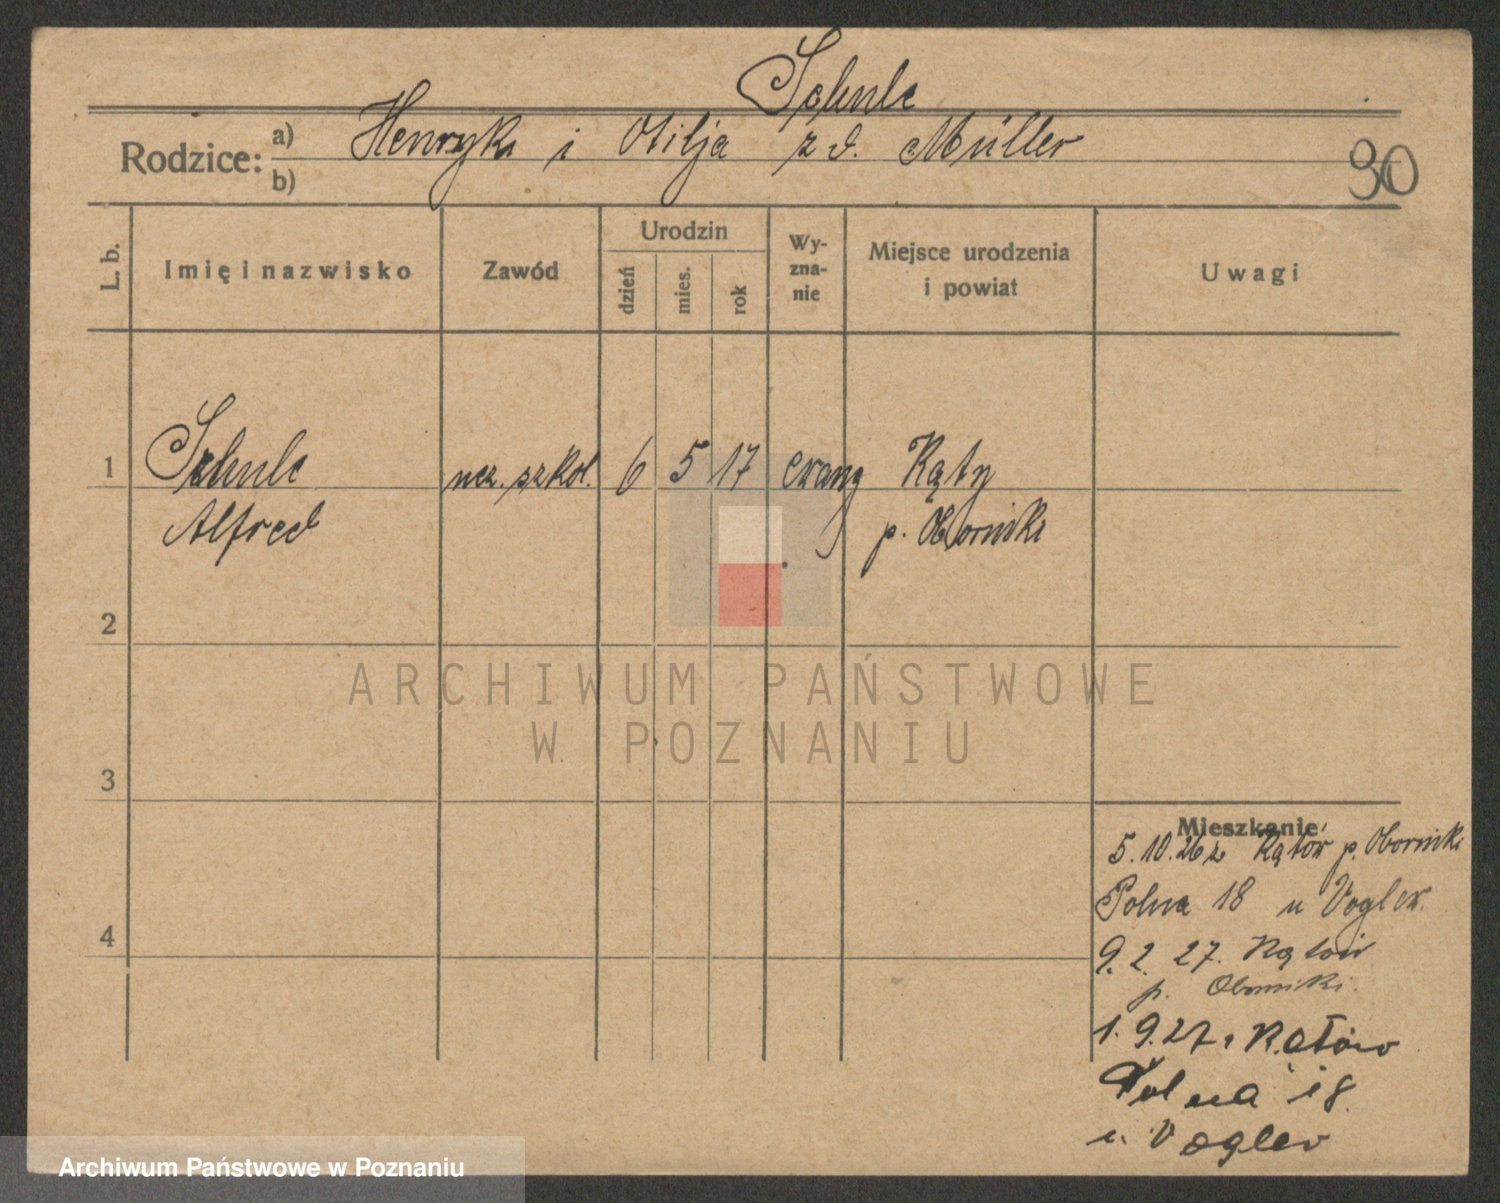 Schulc
Rodzice: a) b) Henryk i Otilja z d. Müller
90
L. b.
Imię i nazwisko
Zawód
Urodzin
dzień
mies.
rok
Wy-
zna-
nie
Miejsce urodzenia
i powiat
Uwagi
1 Schulc ucz. szkol. 6 5 17 ewang Kąty
Alfred p. Obornicki
2
3
4
Mieszkanie
5.10.26 z Kątów p. Obornicki
Polna 18 u Vogler.
9. 2. 27. Kątów
p. Obornicki.
1.9.27 z Kątów
Polna 18
u. Vogler
ARCHIWUM PAŃSTWOWE
W POZNANIU
Archiwum Państwowe w Poznaniu